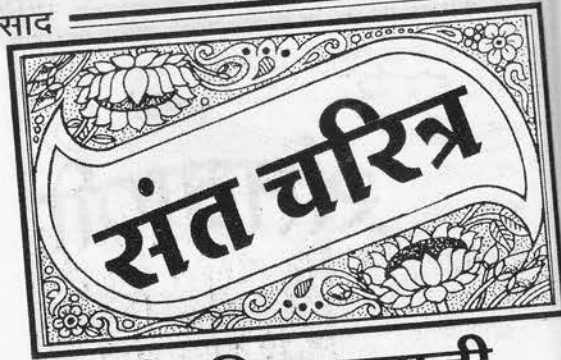 साद
संत चरित्र